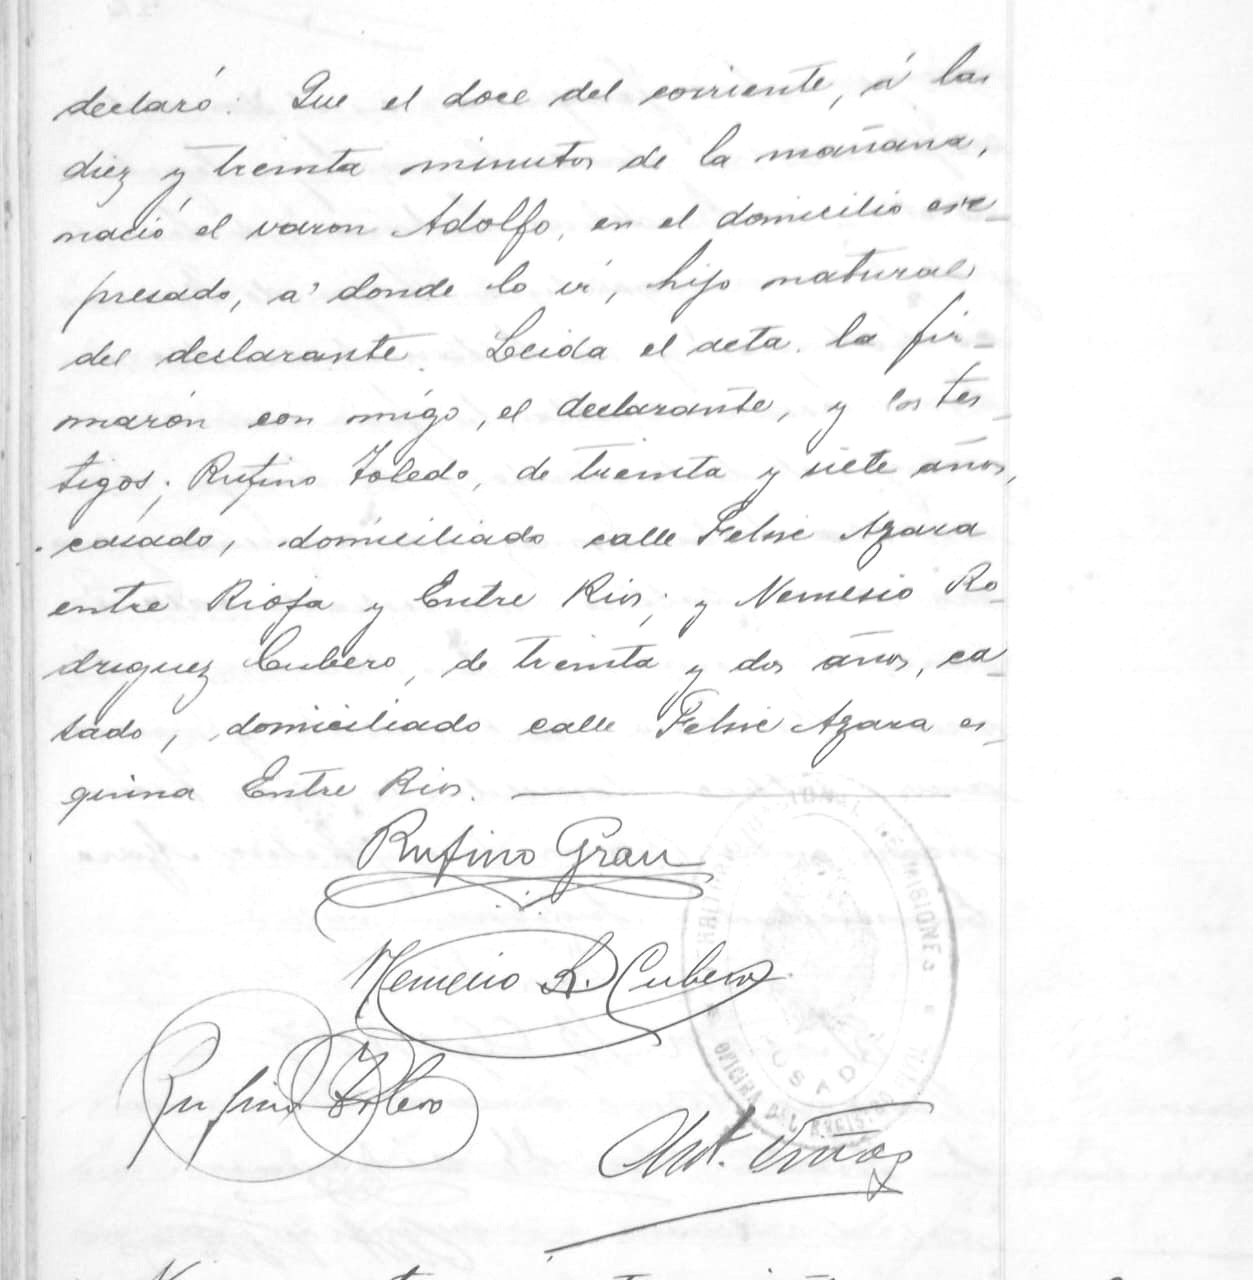 declaró: Que el doce del corriente, á las
diez y treinta minutos de la mañana,
nació el varon Adolfo, en el domicilio ex-
presado, a' donde lo ví, hijo natural
del declarante. Leida el acta, la fir-
marón con migo, el declarante, y los tes-
tigos; Rufino Toledo, de treinta y siete años,
casado, domiciliado calle Felix Azara
entre Rioja y Entre Rios; y Nemesio Ro-
driguez Cubero, de treinta y dos años, ca-
sado, domiciliado calle Felix Azara es-
quina Entre Rios.
Rufino Grau
Nemesio R. Cubero
Rufino Toledo
OFICINA DEL REGISTRO
MISIONES